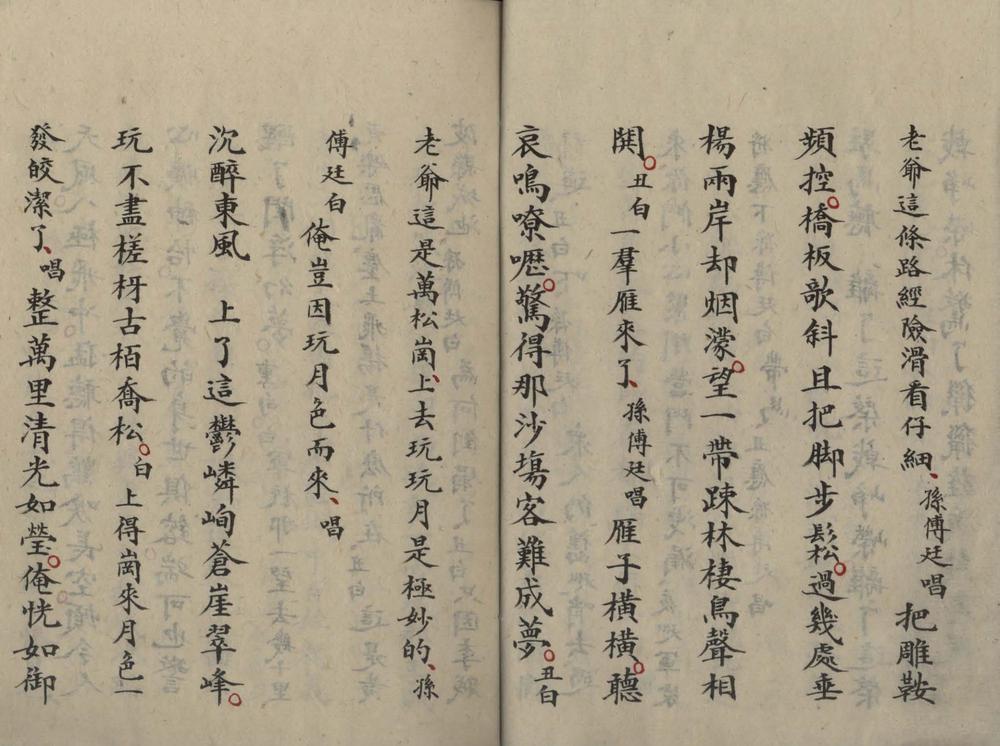 老爺這條路經險滑看仔細、孫傅廷唱 把雕鞍
頻控。橋板歌斜且把脚步鬆。過幾處垂
楊兩岸却烟濛。望一帶踈林棲鳥聲相
鬨。丑白 一羣雁來了、孫傅廷唱 雁子横横。聽
哀鳴嘹嚦。驚得那沙塲客難成夢。丑白
老爺這是萬松崗、上去玩玩月是極妙的、孫
傅廷白 俺豈因玩月色而來、唱
沉醉東風 上了這鬱嶙峋蒼崖翠峰。
玩不盡槎枒古栢喬松。白 上得崗來月色一
發皎潔了、唱 整萬里清光如瑩。俺恍如御